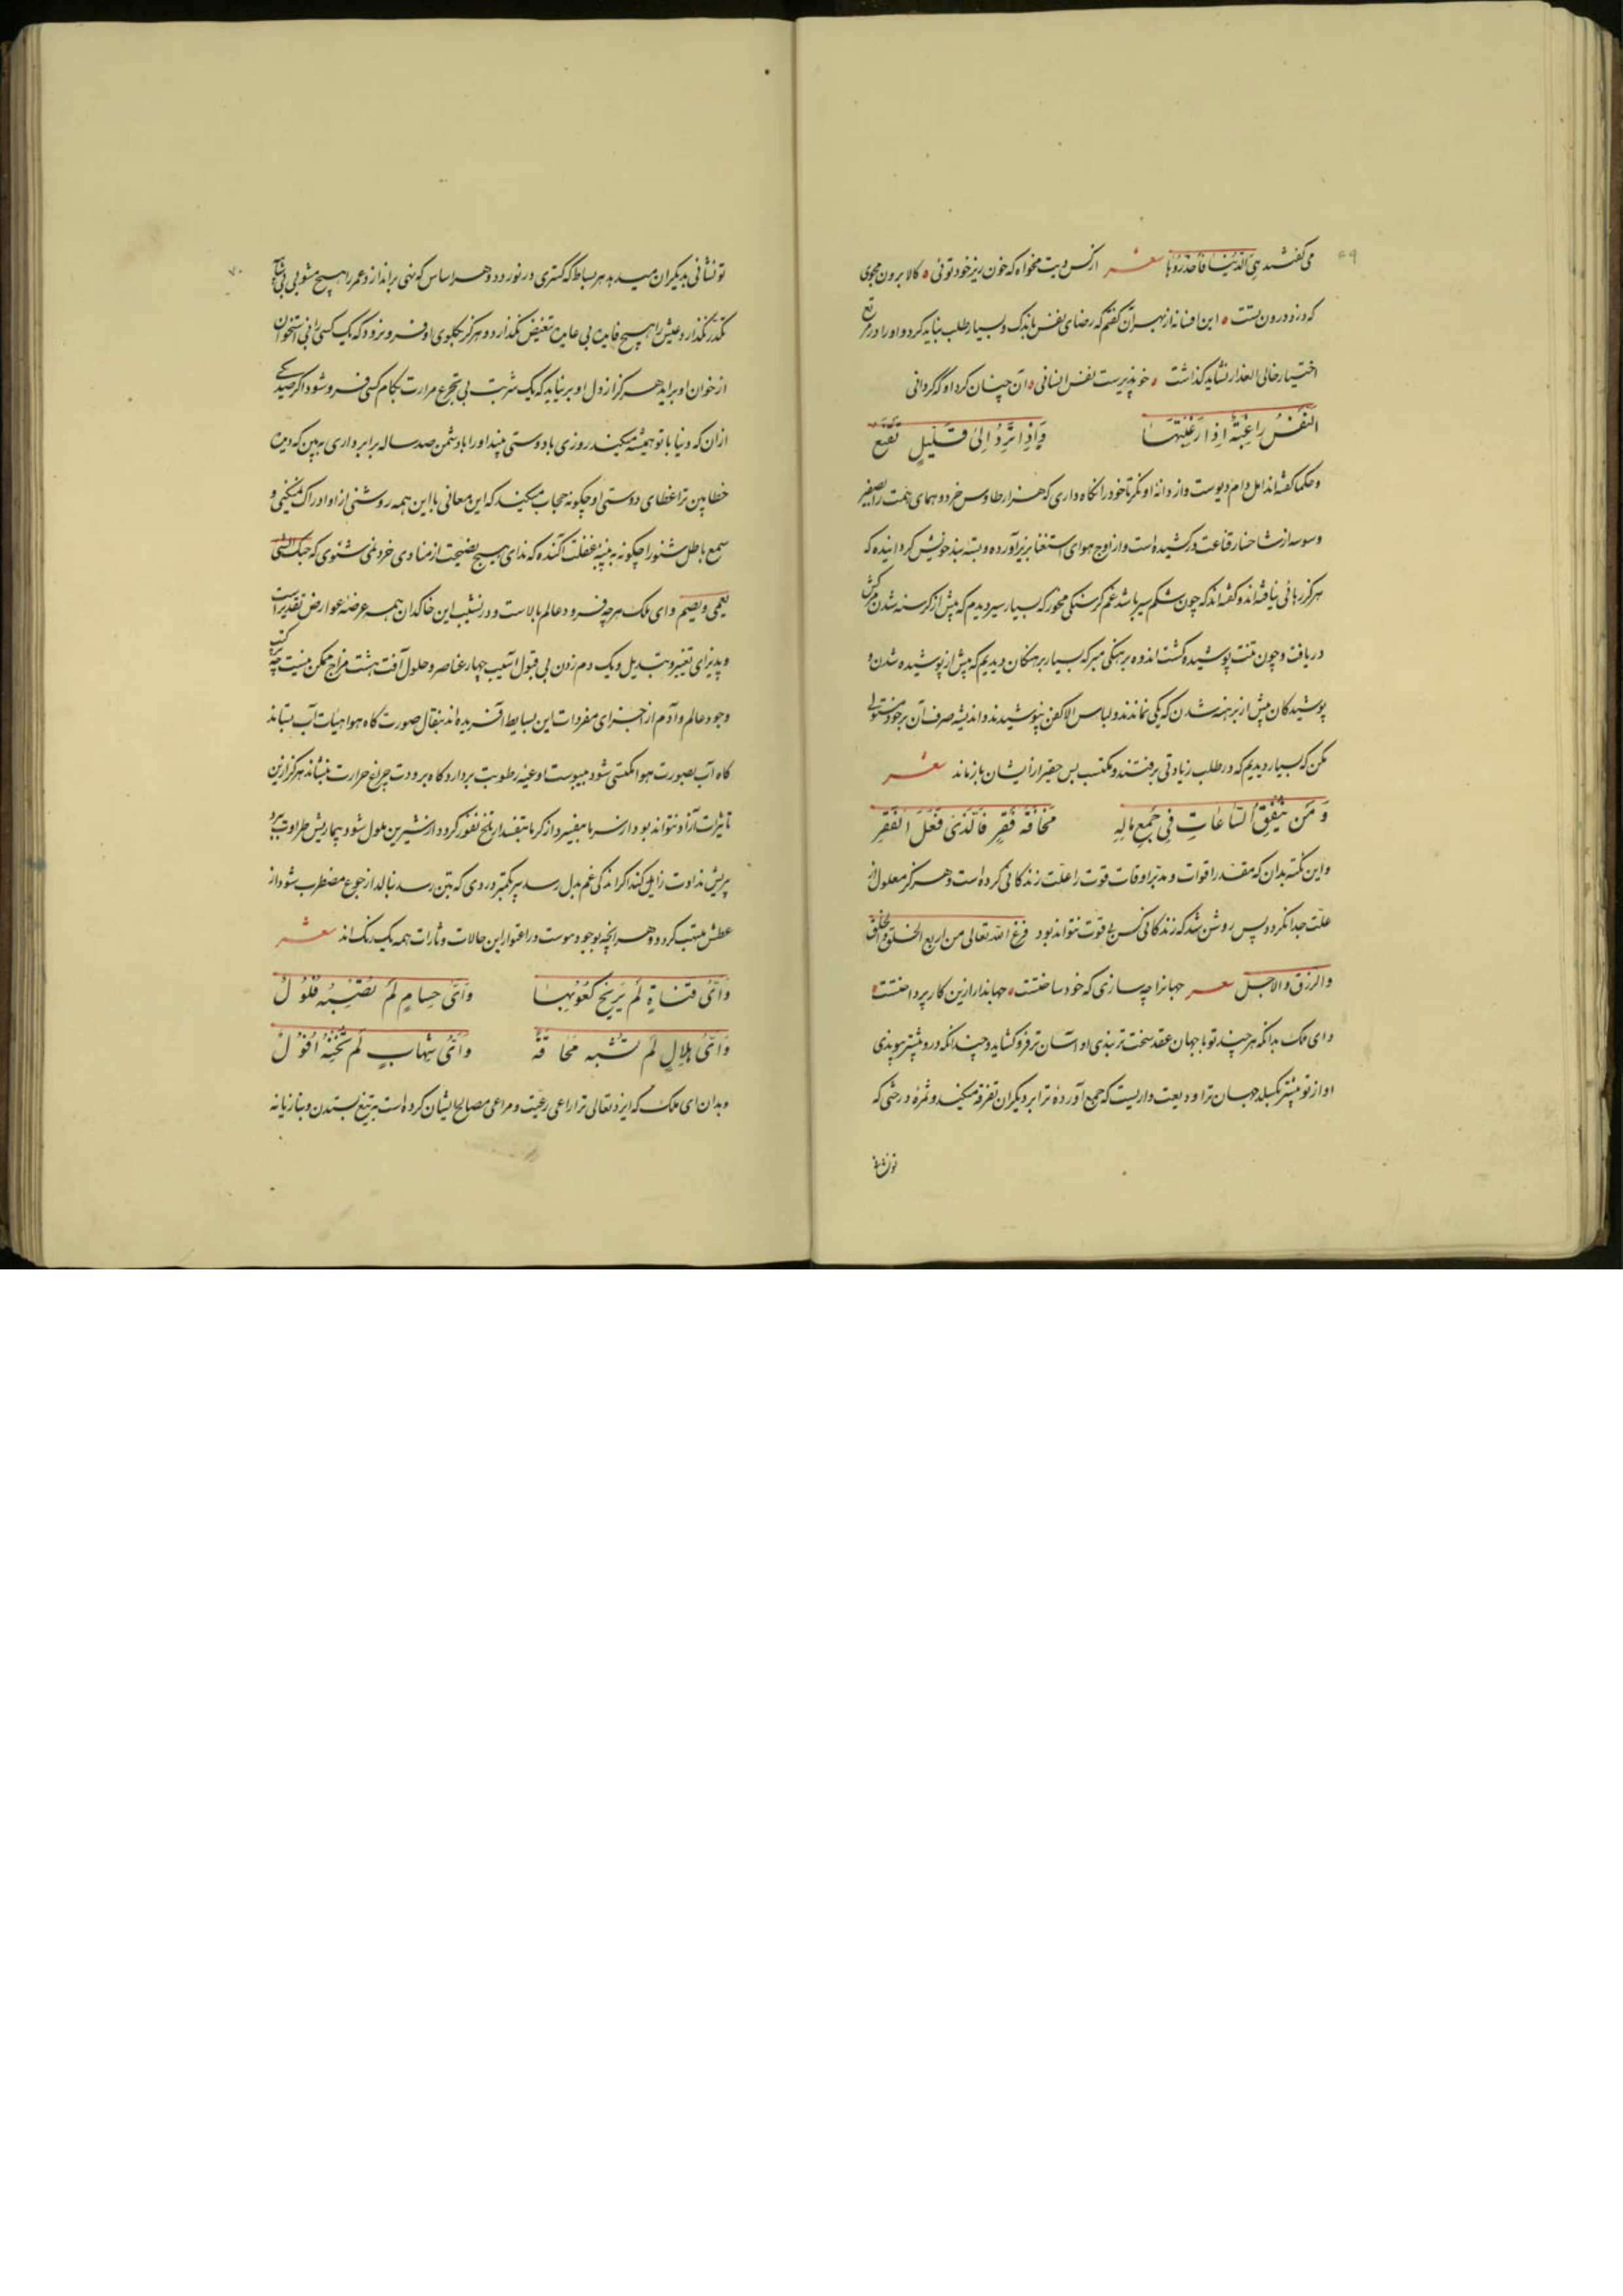 ۶۹
می‌کفتند هی الدّنیا فاحذروها شعر ازکس دیت مخواه که خون ریز خود توئی ۰ کالا برون مجوی
که دزد درون تست ۰ این افسانه از بهر آن کفتم که رضای نفس باندک و بسیار طلب نباید کرد و او را در مرتع
اختیار خالی العذار نشاید کذاشت ۰ خو پذیرست نفس انسانی ۰ آن چنان کردد او که کردانی
النَّفسُ راغِبَةٌ اِذا رَغَّبتَها وَاِذا تُرَدُّ اِلیٰ قَلیلٍ تَقنَعُ
و حکما کفته‌اند امل دام دیوست و از دانهٔ او نکر تا خود را نکاه داری که هزار طاوس خرد و همای همت را بصفیر
وسوسه از شاخسار قناعت درکشیده است و از اوج هوای استغنا بزیر آورده و بستهٔ بند خویش کردانیده که
هرکز رهائی نیافته‌اند و کفته‌اند که چون شکم سیر باشد غم کرسنکی مخور که بسیار سیر دیدم که پیش از کرسنه شدن مرکش
دریافت و چون تنت پوشیده کشت اندوه برهنکی مبر که بسیار برهنکان دیدیم که پیش از پوشیده شدن و
پوشیدکان پیش از برهنه شدن که یکی نماندند و لباس الا کفن نپوشیدند و اندیشه صرف آن بر خود مستولی
مکن که بسیار دیدیم که در طلب زیادتی برفتند و مکتسب بس حقیر از ایشان باز ماند شعر
وَمَن یُنفِقِ السّاعاتِ فی جَمعِ مالِهِ مَخافَةَ فَقرٍ فَالَّذی فَعَلَ الفَقرُ
و این نکته بدان که مقدر اقوات و مدبر اوقات قوت را علت زندکانی کرده است و هرکز معلول از
علت جدا نکردد پس روشن شد که زندکانی کس بی قوت نتواند بود فرغ الله تعالی من اربع الخلق والخلق
والرزق والاجل شعر جهانرا چه سازی که خود ساختست ۰ جهاندار ازین کار پرداختست ۰
و ای ملک بدانکه هر چند تو با جهان عقد سخت تر بندی او آسان تر فرو کشاید و چندانکه درو بیشتر پیوندی
او از تو بیشتر بکسلد جهان ترا ودیعت داریست که جمع آوردهٔ ترا بر دیکران تفرقه میکند و ثمرهٔ درختی که
۷۰
تو نشانی بدیکران میدهد هر بساط که کستری در نوردد و هر اساس که نهی براندازد و عمر را هیچ مشربی بی شائبهٔ
تکدر نکذارد و عیش را هیچ مایدهٔ بی عایدهٔ تنغص نکذارد و هرکز بکلوی او فرو نرود که یک کسی را بی استخوان
از خوان او برآید هرکز از دل او برنیاید که یک شربت بی تجرع مرارت بکام کسی فرو شود اکر صد یکی
از آن که دنیا با تو همیشه میکند روزی با دوستی بیند او را با دشمن صد ساله برابر داری ببین که دیدهٔ
خطابین ترا غطای دوستی او چکونه حجاب میکند که این معانی با این همه روشنی ازو ادراک نمیکنی و
سمع باطل شنو را چکونه به پنبهٔ غفلت آکنده که ندای هیچ نصیحت از منادی خرد نمی شنوی که حبک الشی
یعمی و یصم و ای ملک هر چه فرود عالم بالاست و در نشیب این خاکدان همه عرضهٔ عوارض تقدیر است
و پذیرای تغییر و تبدیل و یک دم زدن بی قبول آسیب چهار عناصر و حلول آفت هشت مزاج ممکن نیست چه
وجود عالم و آدم از اجزای مفردات این بسایط آفریده‌اند بنقال صورت کاه هوا هیأت آب بستاند
کاه آب بصورت هوا مکتسی شود یبوست اوعیهٔ رطوبت بردارد و کاه برودت چراغ حرارت بنشاند هرکز ازین
تاثیرات آزاد نتواند بود از سرما بیفسرد از کرما بتفسد از تلخ نفور کردد از شیرین ملول شود بیماریش طراوت ببرد
پیریش نداوت زایل کند اکر اندکی غم بدل رسد پژمرد و کمتر دردی که بتن رسد بنالد از جوع مضطرب شود از
عطش ملتهب کردد و هر آنچه بوجود موسوم است در اعتوار این حالات و ثارات همه یک رنک‌اند شعر
وَاَیُّ قَناةٍ لَم یُرَنَّح کُعوبُها وَاَیُّ حِسامٍ لَم یُصِبهُ فُلُولُ
وَاَیُّ هِلالٍ لَم یَشِنهُ مَحاقُهُ وَاَیُّ شِهابٍ لَم یَخُنهُ اُفُولُ
و بدان ای ملک که ایزد تعالی ترا راعی رعیت و مراعی مصالح ایشان کرده است بر تیغ بستدن و بتازیانه